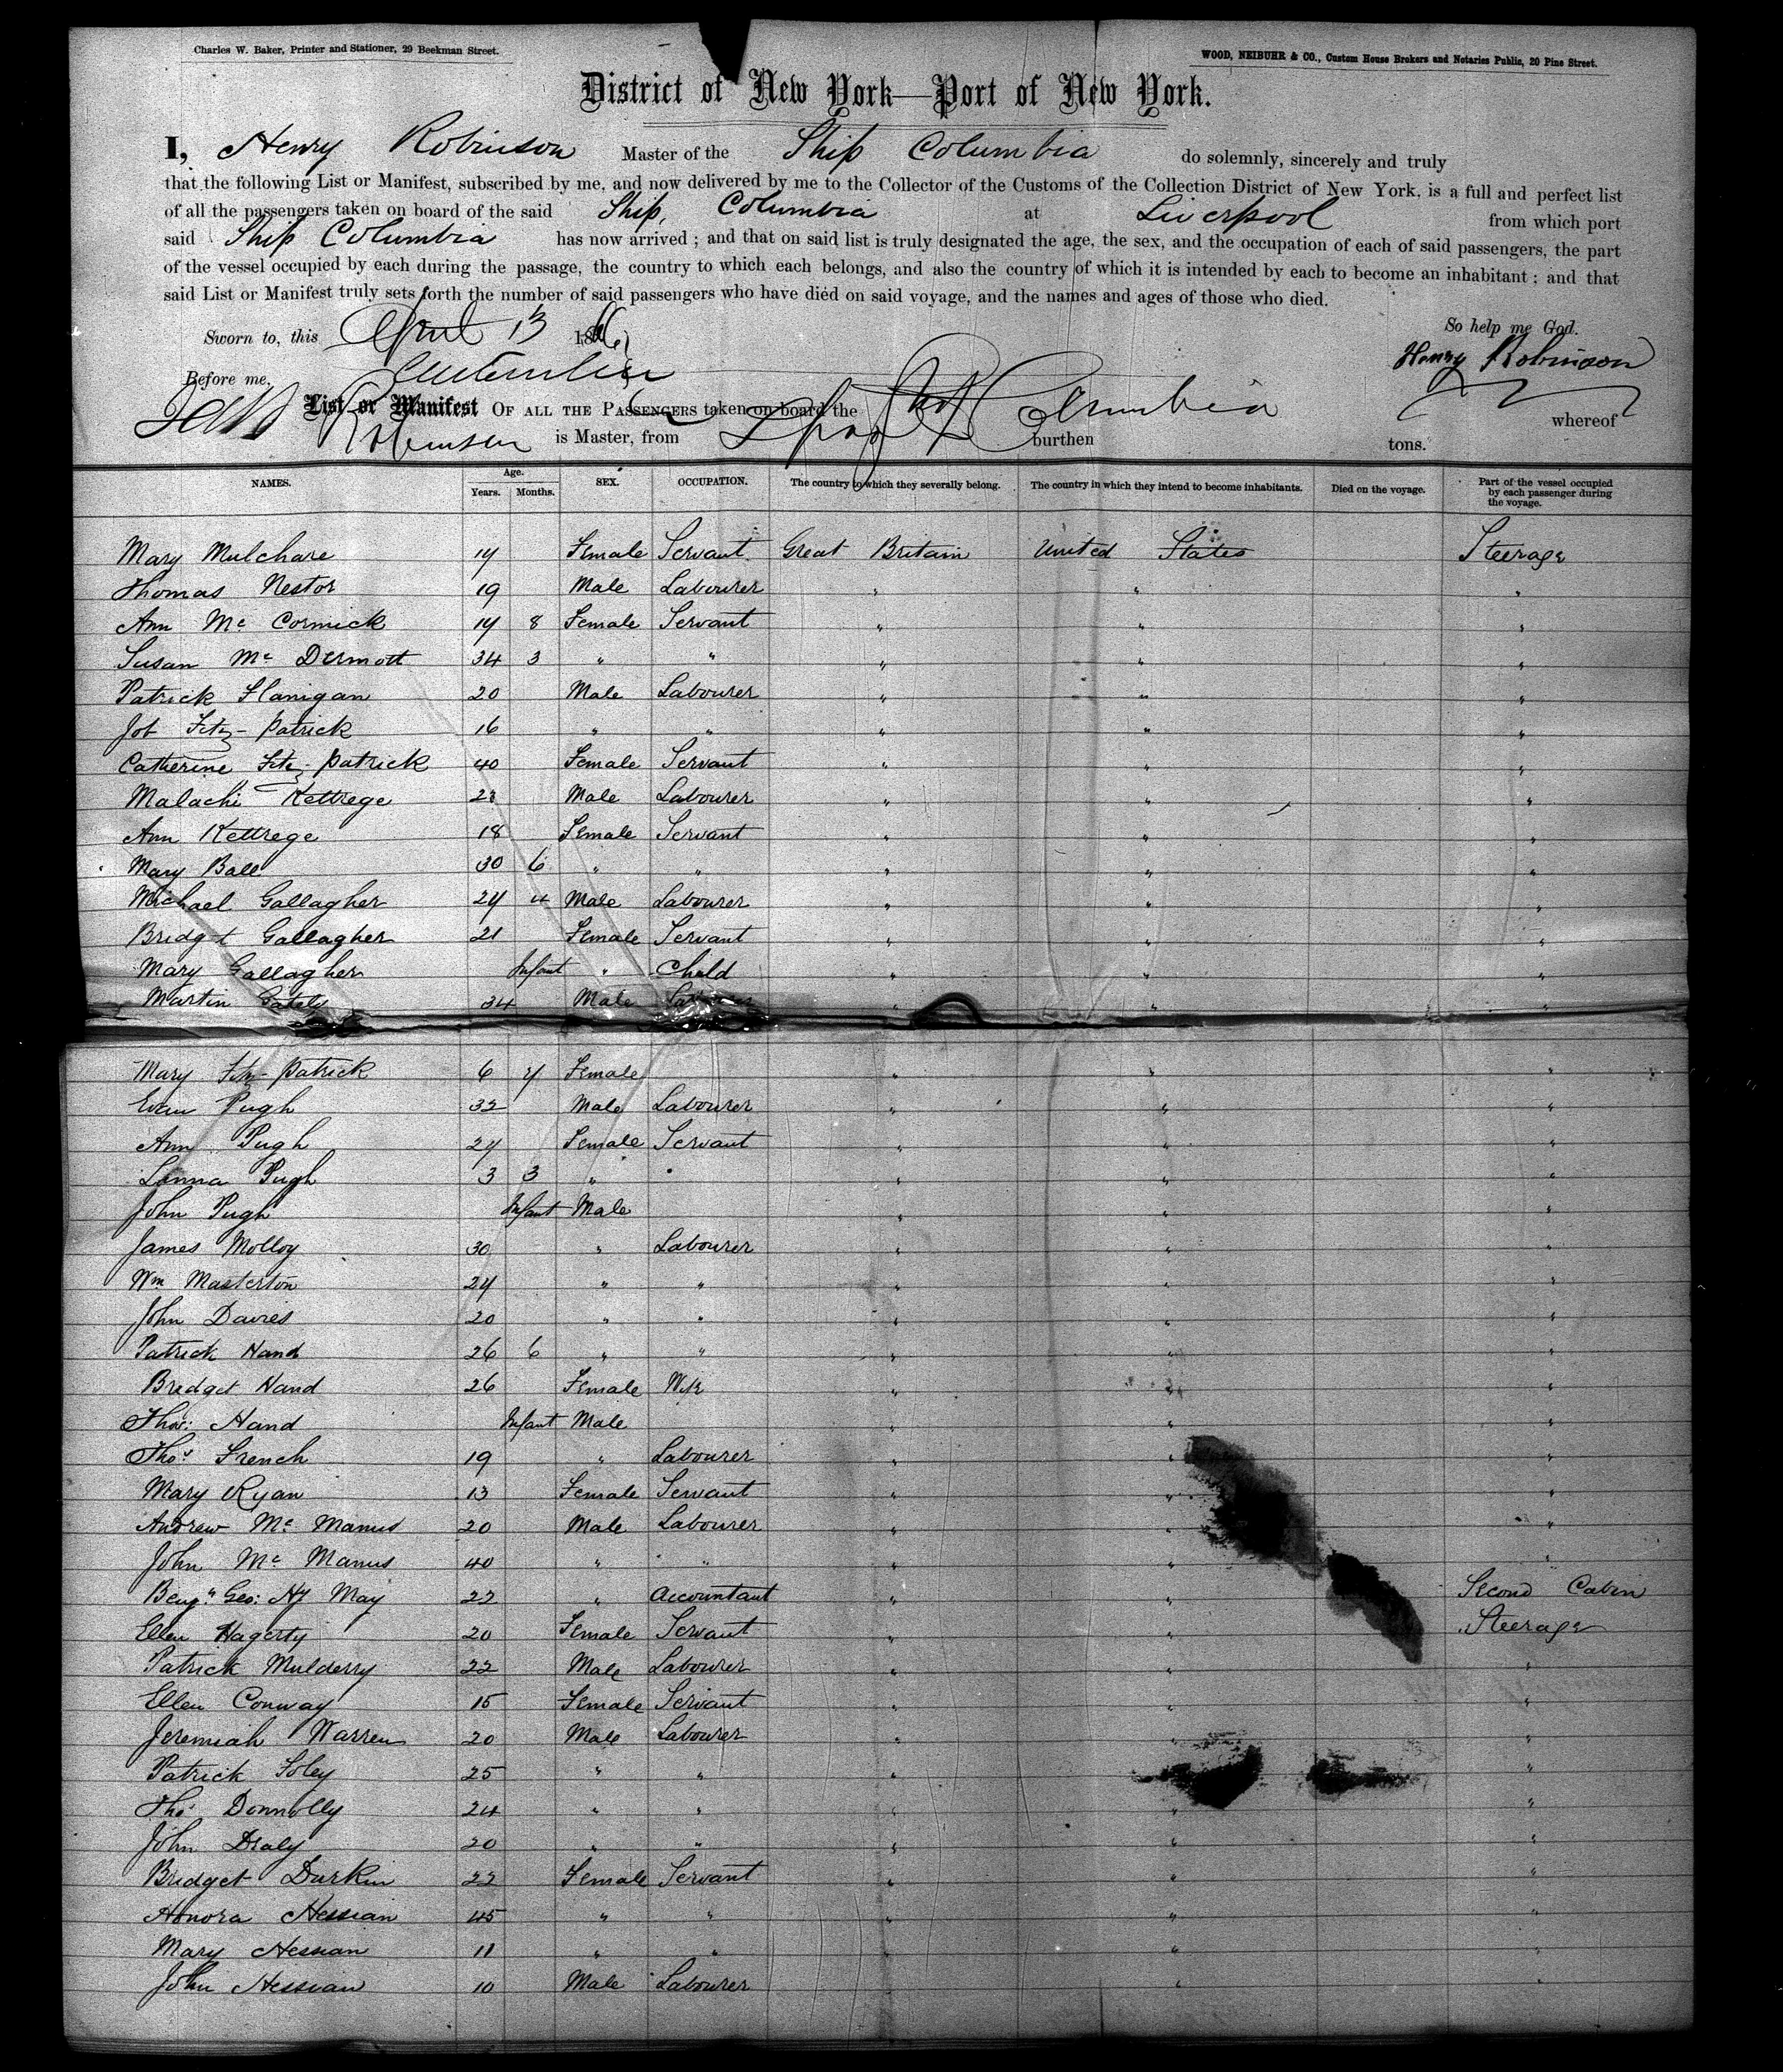 Charles W. Baker, Printer and Stationer, 29 Beekman Street.
WOOD, NEIBUHR & CO., Custom House Brokers and Notaries Public, 20 Pine Street.
District of New York—Port of New York.
I, Henry Robinson Master of the Ship Columbia do solemnly, sincerely and truly
that the following List or Manifest, subscribed by me, and now delivered by me to the Collector of the Customs of the Collection District of New York, is a full and perfect list
of all the passengers taken on board of the said Ship, Columbia at Liverpool from which port
said Ship Columbia has now arrived; and that on said list is truly designated the age, the sex, and the occupation of each of said passengers, the part
of the vessel occupied by each during the passage, the country to which each belongs, and also the country of which it is intended by each to become an inhabitant; and that
said List or Manifest truly sets forth the number of said passengers who have died on said voyage, and the names and ages of those who died.
Sworn to, this April 13 1866 So help me God.
Before me, Henry Robinson
List or Manifest OF ALL THE PASSENGERS taken on board the Ship Columbia whereof
Robinson is Master, from burthen tons.
NAMES. Age. Years. Months. SEX. OCCUPATION. The country to which they severally belong. The country in which they intend to become inhabitants. Died on the voyage. Part of the vessel occupied by each passenger during the voyage.
Mary Mulchare 14 Female Servant Great Britain United States Steerage
Thomas Nestor 19 Male Labourer " " "
Ann Mc Cormick 14 8 Female Servant " " "
Susan Mc Dermott 34 3 " " " " "
Patrick Flanigan 20 Male Labourer " " "
Job Fitz-Patrick 16 " " " " "
Catherine Fitz-Patrick 40 Female Servant " " "
Malachi Kettrege 28 Male Labourer " " "
Ann Kettrege 18 Female Servant " " "
Mary Ball 30 6 " " " " "
Michael Gallagher 24 4 Male Labourer " " "
Bridget Gallagher 21 Female Servant " " "
Mary Gallagher Infant " Child " " "
Martin Gately 34 Male " " "
Mary Fitz-Patrick 6 4 Female " " "
Evan Pugh 32 Male Labourer " " "
Ann Pugh 24 Female Servant " " "
Lanna Pugh 3 3 " " " "
John Pugh Infant Male " " "
James Molloy 30 " Labourer " " "
Wm Masterton 24 " " " " "
John Davies 20 " " " " "
Patrick Hand 26 6 " " " " "
Bridget Hand 26 Female Wife " " "
Thos: Hand Infant Male " " "
Thos French 19 " Labourer " " "
Mary Ryan 13 Female Servant " " "
Andrew Mc Manus 20 Male Labourer " " "
John Mc Manus 40 " " " " "
Benjn Geo: Hy May 22 " Accountant " " Second Cabin
Ellen Hagerty 20 Female Servant " " Steerage
Patrick Mulderry 22 Male Labourer " " "
Ellen Conway 15 Female Servant " " "
Jeremiah Warren 20 Male Labourer " " "
Patrick Foley 25 " " " " "
Thos Donnolly 24 " " " " "
John Draly 20 " " " " "
Bridget Durkin 22 Female Servant " " "
Honora Hessian 45 " " " " "
Mary Hessian 11 " " " " "
John Hessian 10 Male Labourer " "